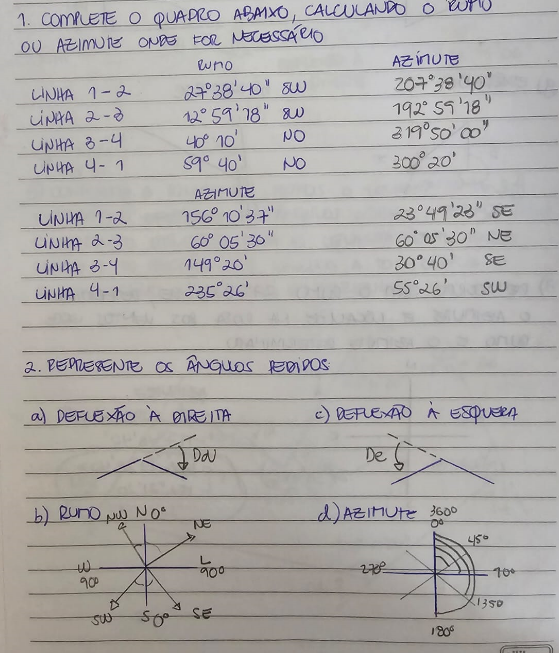 1. COMPLETE O QUADRO ABAIXO, CALCULANDO O RUMO
OU AZIMUTE ONDE FOR NECESSÁRIO
RUMO AZIMUTE
LINHA 1-2 27°38'40" SW 207°38'40"
LINHA 2-3 12°59'18" SW 192°59'18"
LINHA 3-4 40° 10' NO 319°50'00"
LINHA 4-1 59° 40' NO 300°20'
AZIMUTE
LINHA 1-2 156°10'37" 23°49'23" SE
LINHA 2-3 60°05'30" 60°05'30" NE
LINHA 3-4 149°20' 30°40' SE
LINHA 4-1 235°26' 55°26' SW
2. REPRESENTE OS ÂNGULOS PEDIDOS
a) DEFLEXÃO À DIREITA c) DEFLEXÃO À ESQUERA
Dd De
b) RUMO d) AZIMUTE
NW N 0° NE
W 90° L 90°
SW S 0° SE
360°
0°
45°
270° 90°
135°
180°